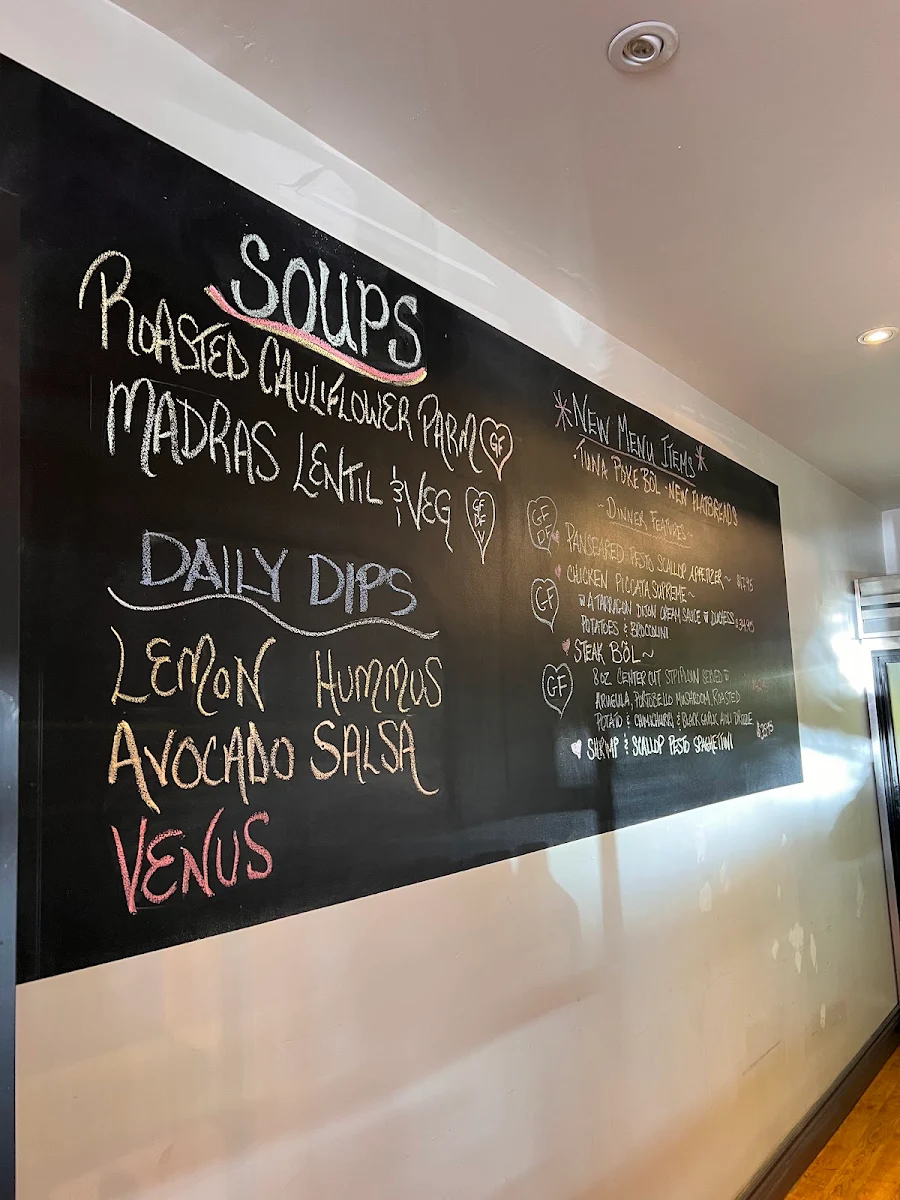 SOUPS
ROASTED CAULIFLOWER PARM GF
MADRAS LENTIL & VEG GF DF V
DAILY DIPS
LEMON HUMMUS
AVOCADO SALSA
VENUS
*NEW MENU ITEMS*
·TUNA POKE BÖL ·NEW FLATBREADS
~DINNER FEATURES~
GF DF
PANSEARED PESTO SCALLOP APPETIZER ~ $17.95
CHICKEN PICCATA SUPREME ~
GF
W A TARRAGON DIJON CREAM SAUCE W DUCHESS
POTATOES & BROCCOLINI $34.95
STEAK BÖL ~
GF
8 OZ CENTER CUT STRIPLOIN SERVED W
ARUGULA, PORTOBELLO MUSHROOM, ROASTED
POTATO & CHIMICHURRI & BLACK GARLIC AIOLI DRIZZLE
SHRIMP & SCALLOP PESTO SPAGHETTINI